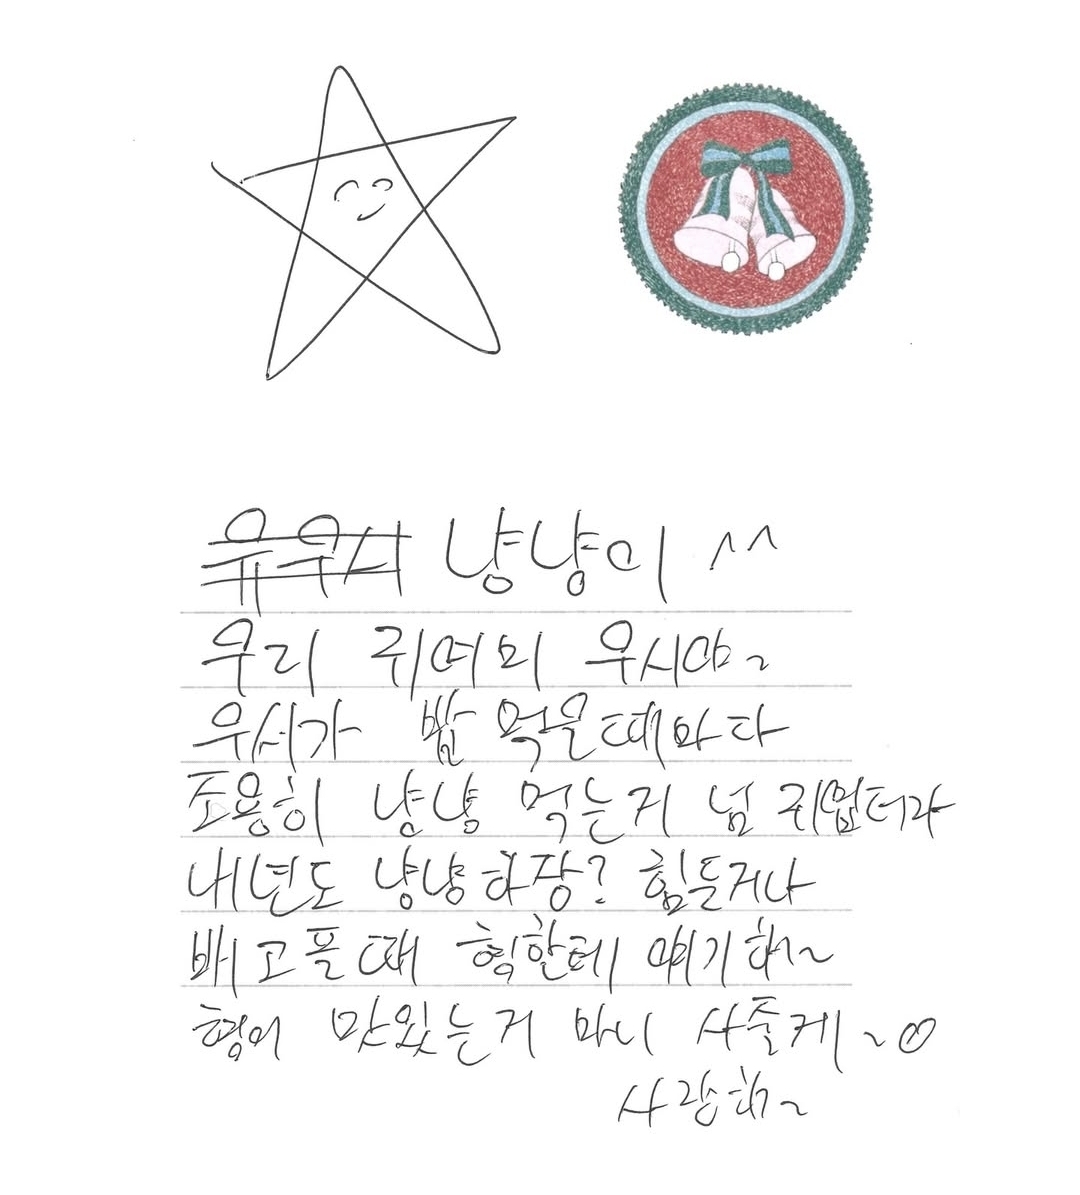 유우시 냥냥이 ^^
우리 귀여의 우시야~
우시가 밥 먹을때마다
조용히 냥냥 먹는거 넘 귀엽더라
내년도 냥냥하장? 힘들거나
배고플때 형한테 얘기해~
형이 맛있는거 마니 사줄게~♡
사랑해~